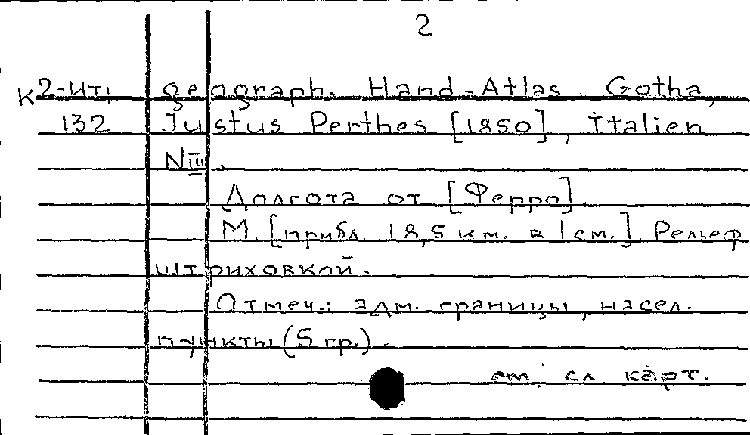 2
К 2-Ит, geograph. Hand-Atlas Gotha,
132 Justus Perthes [1850], Italien
N III.
Долгота от [Ферро]
М. [прибл. 18,5 км. в 1 см.] Рельеф
штриховкой.
Отмеч.: адм. границы, насел.
пункты (5 гр.).
см. сл. карт.